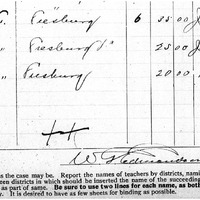 " Piesburg 6 35.00
" Piesburg 25.00
" Piesburg 20.00
W. Redmandson
s the case may be. Report the names of teachers by districts, nami
een districts in which should be inserted the name of the succeeding
as part of same. Be sure to use two lines for each name, as both
y. It is desired to have as few sheets for binding as possible.